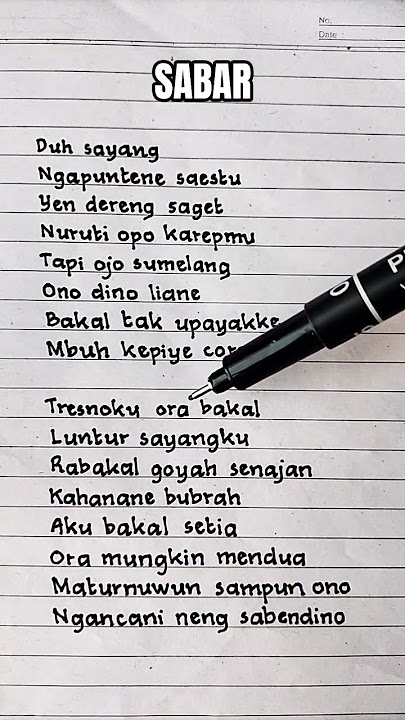 No.
Date :
SABAR
Duh sayang
Ngapuntene saestu
Yen dereng saget
Nuruti opo karepmu
Tapi ojo sumelang
Ono dino liane
Bakal tak upayakke
Mbuh kepiye
Tresnoku ora bakal
Luntur sayangku
Rabakal goyah senajan
Kahanane bubrah
Aku bakal setia
Ora mungkin mendua
Maturnuwun sampun ono
Ngancani neng sabendino